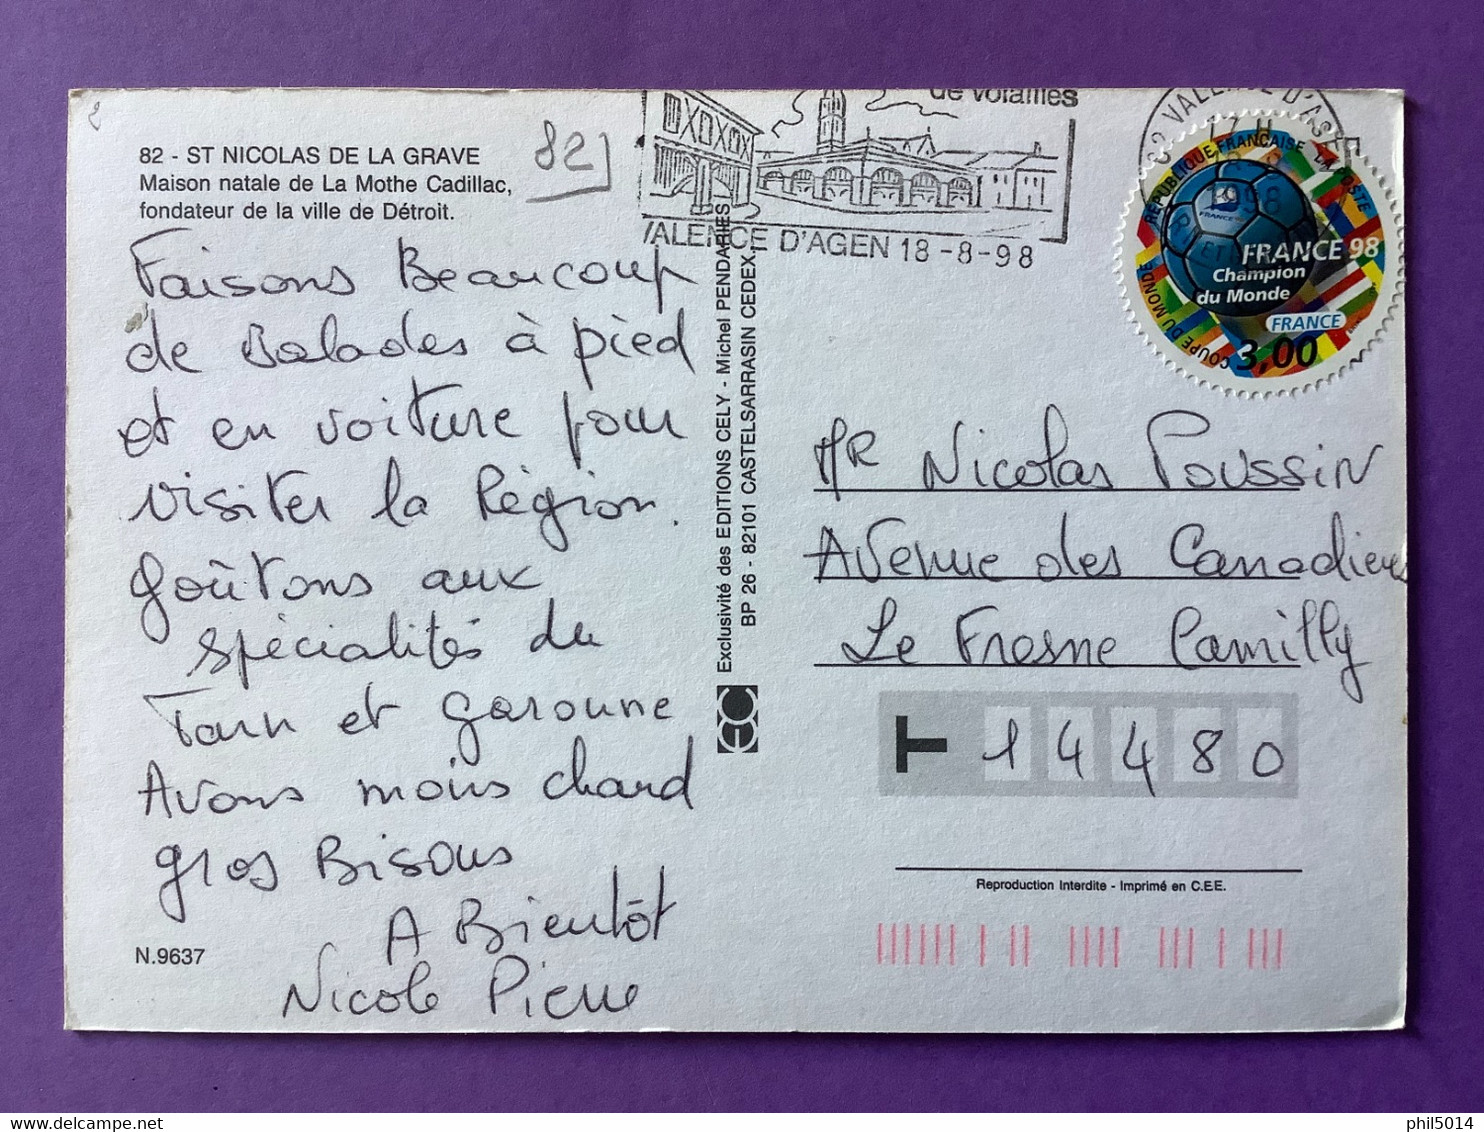 2
82 - ST NICOLAS DE LA GRAVE
Maison natale de La Mothe Cadillac,
fondateur de la ville de Détroit.
82
Faisons Beaucoup
de Balades à pied
et en voiture pour
visiter la Région.
goûtons aux
spécialités du
Tarn et garonne
Avons moins chaud
gros Bisous
A Bientôt
Nicole Pierre
N.9637
de volailles
VALENCE D'AGEN 18-8-98
Exclusivité des EDITIONS CELY - Michel PENDARIES
BP 26 - 82101 CASTELSARRASIN CEDEX
82 VALENCE D'AGEN
17 H
18 - 8
1998
TARN ET
RÉPUBLIQUE FRANÇAISE LA POSTE
FRANCE 98
FRANCE 98
Champion
du Monde
FRANCE
3,00
COUPE DU MONDE
MR Nicolas Poussin
Avenue des Canadiens
Le Fresne Camilly
T 14480
Reproduction Interdite - Imprimé en C.E.E.
phil5014